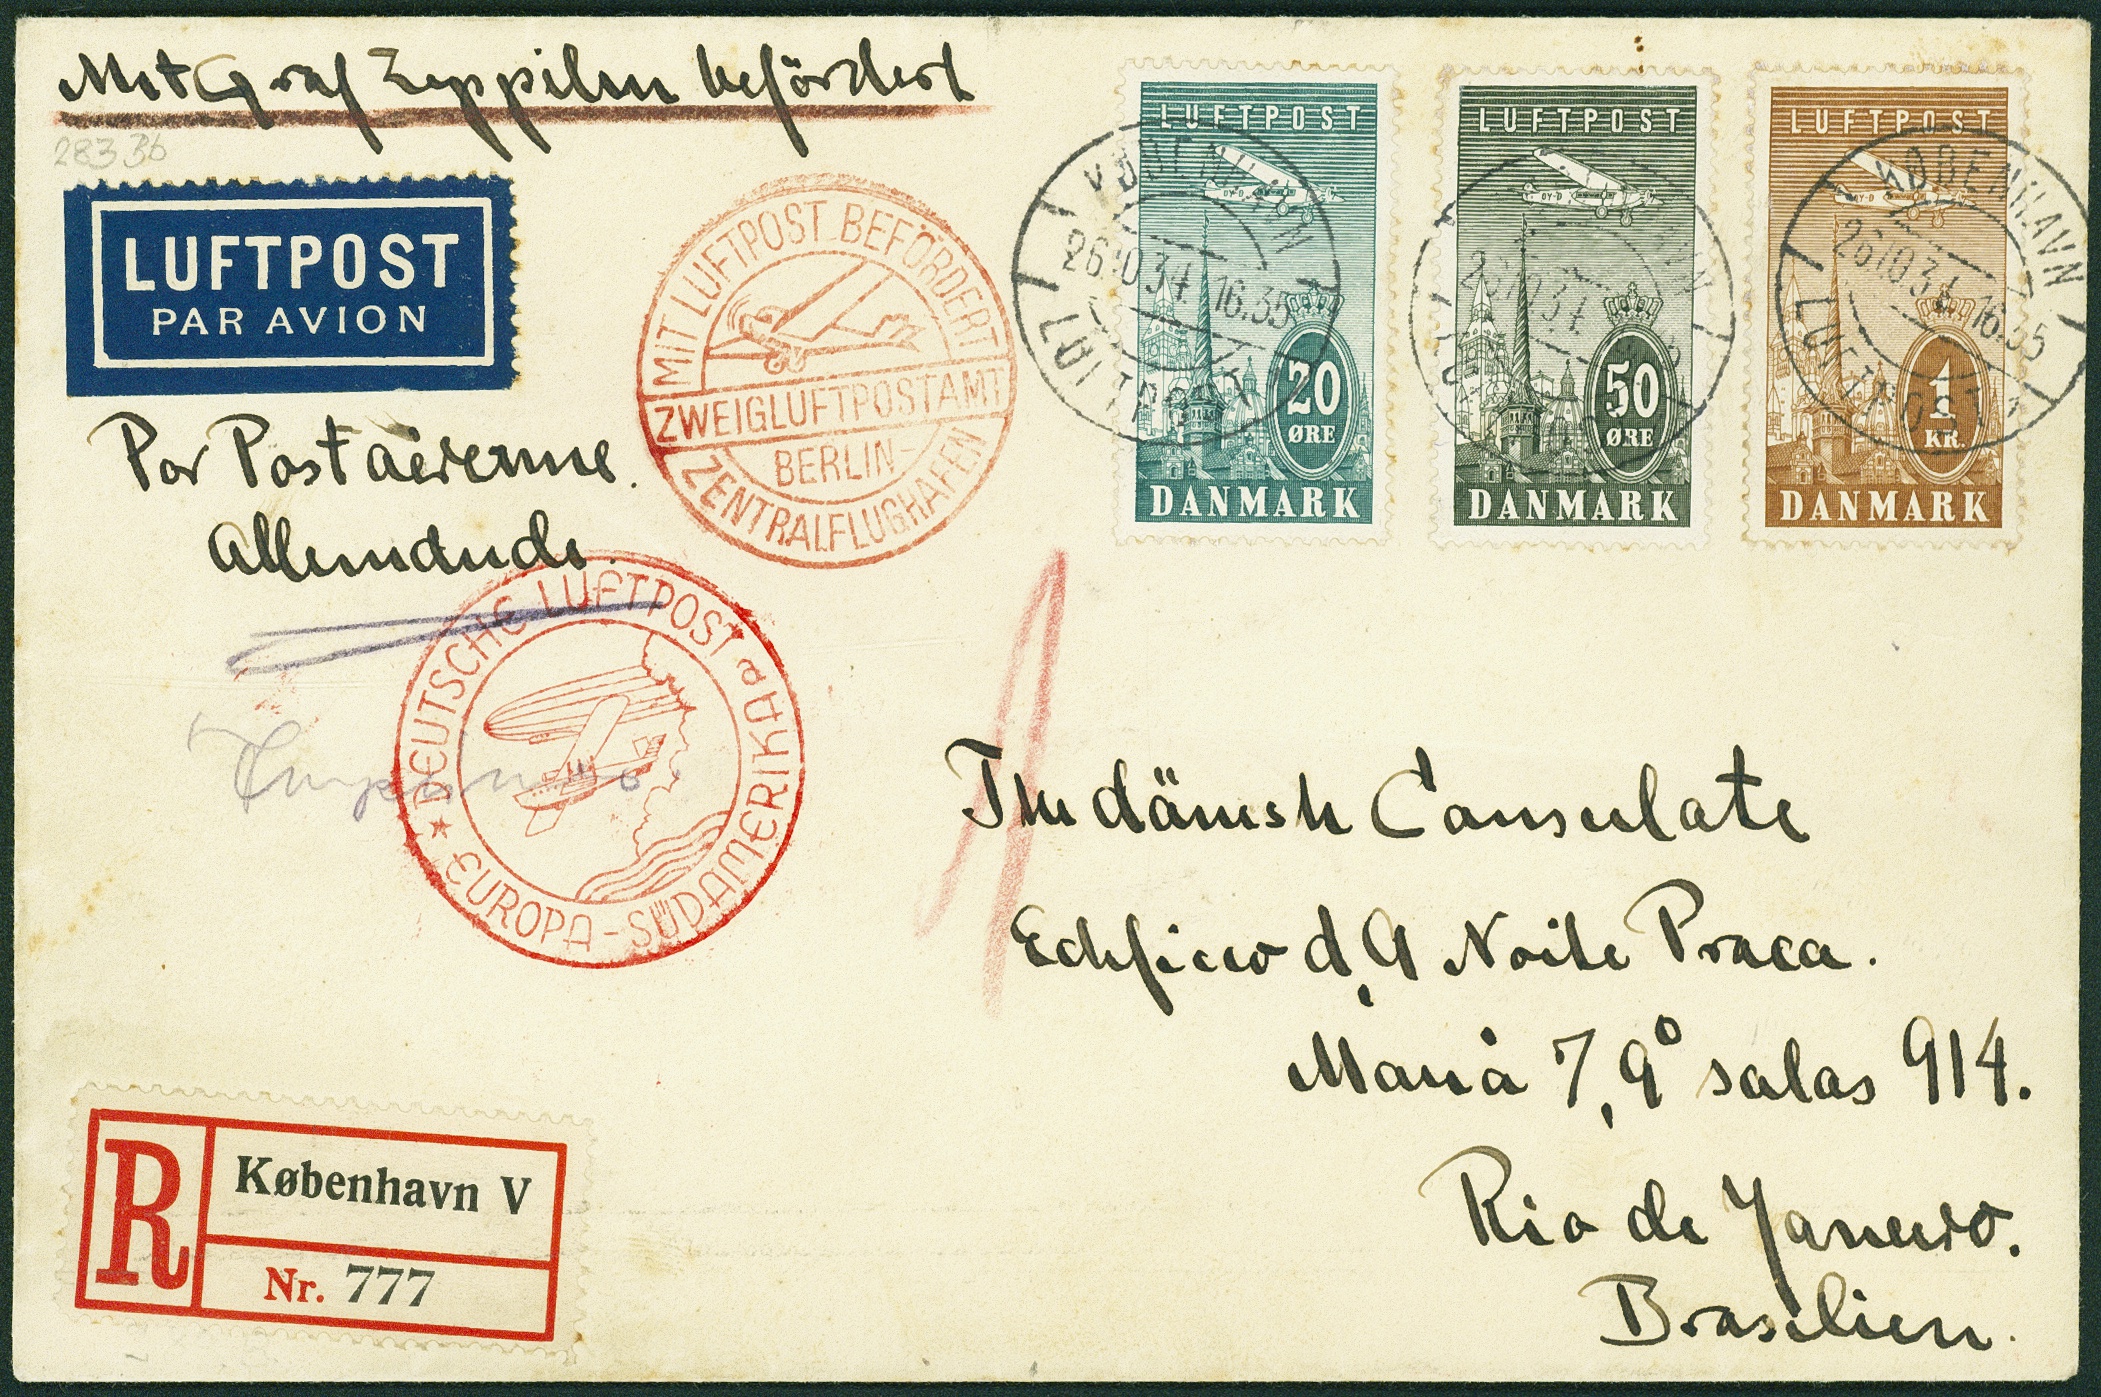 Mit Graf Zeppelin befördert
283 Bb
LUFTPOST
PAR AVION
Par Postaérienne.
Allemdude.
MIT LUFTPOST BEFÖRDERT
ZWEIGLUFTPOSTAMT
BERLIN-
ZENTRALFLUGHAFEN
DEUTSCHE LUFTPOST a
EUROPA-SÜDAMERIKA
LUFTPOST
OY-D
20
ØRE
DANMARK
KØBENHAVN
26.10.34 16.35
LUFTPOST
LUFTPOST
OY-D
50
ØRE
DANMARK
LUFTPOST
OY-D
1
KR.
DANMARK
KØBENHAVN
26.10.34 16.35
LUFTPOST
The dänish Consulate
Edificio d'A Noite Praca.
Mauá 7, 9º salas 914.
Rio de Janeiro.
Brasilien.
R
København V
Nr. 777